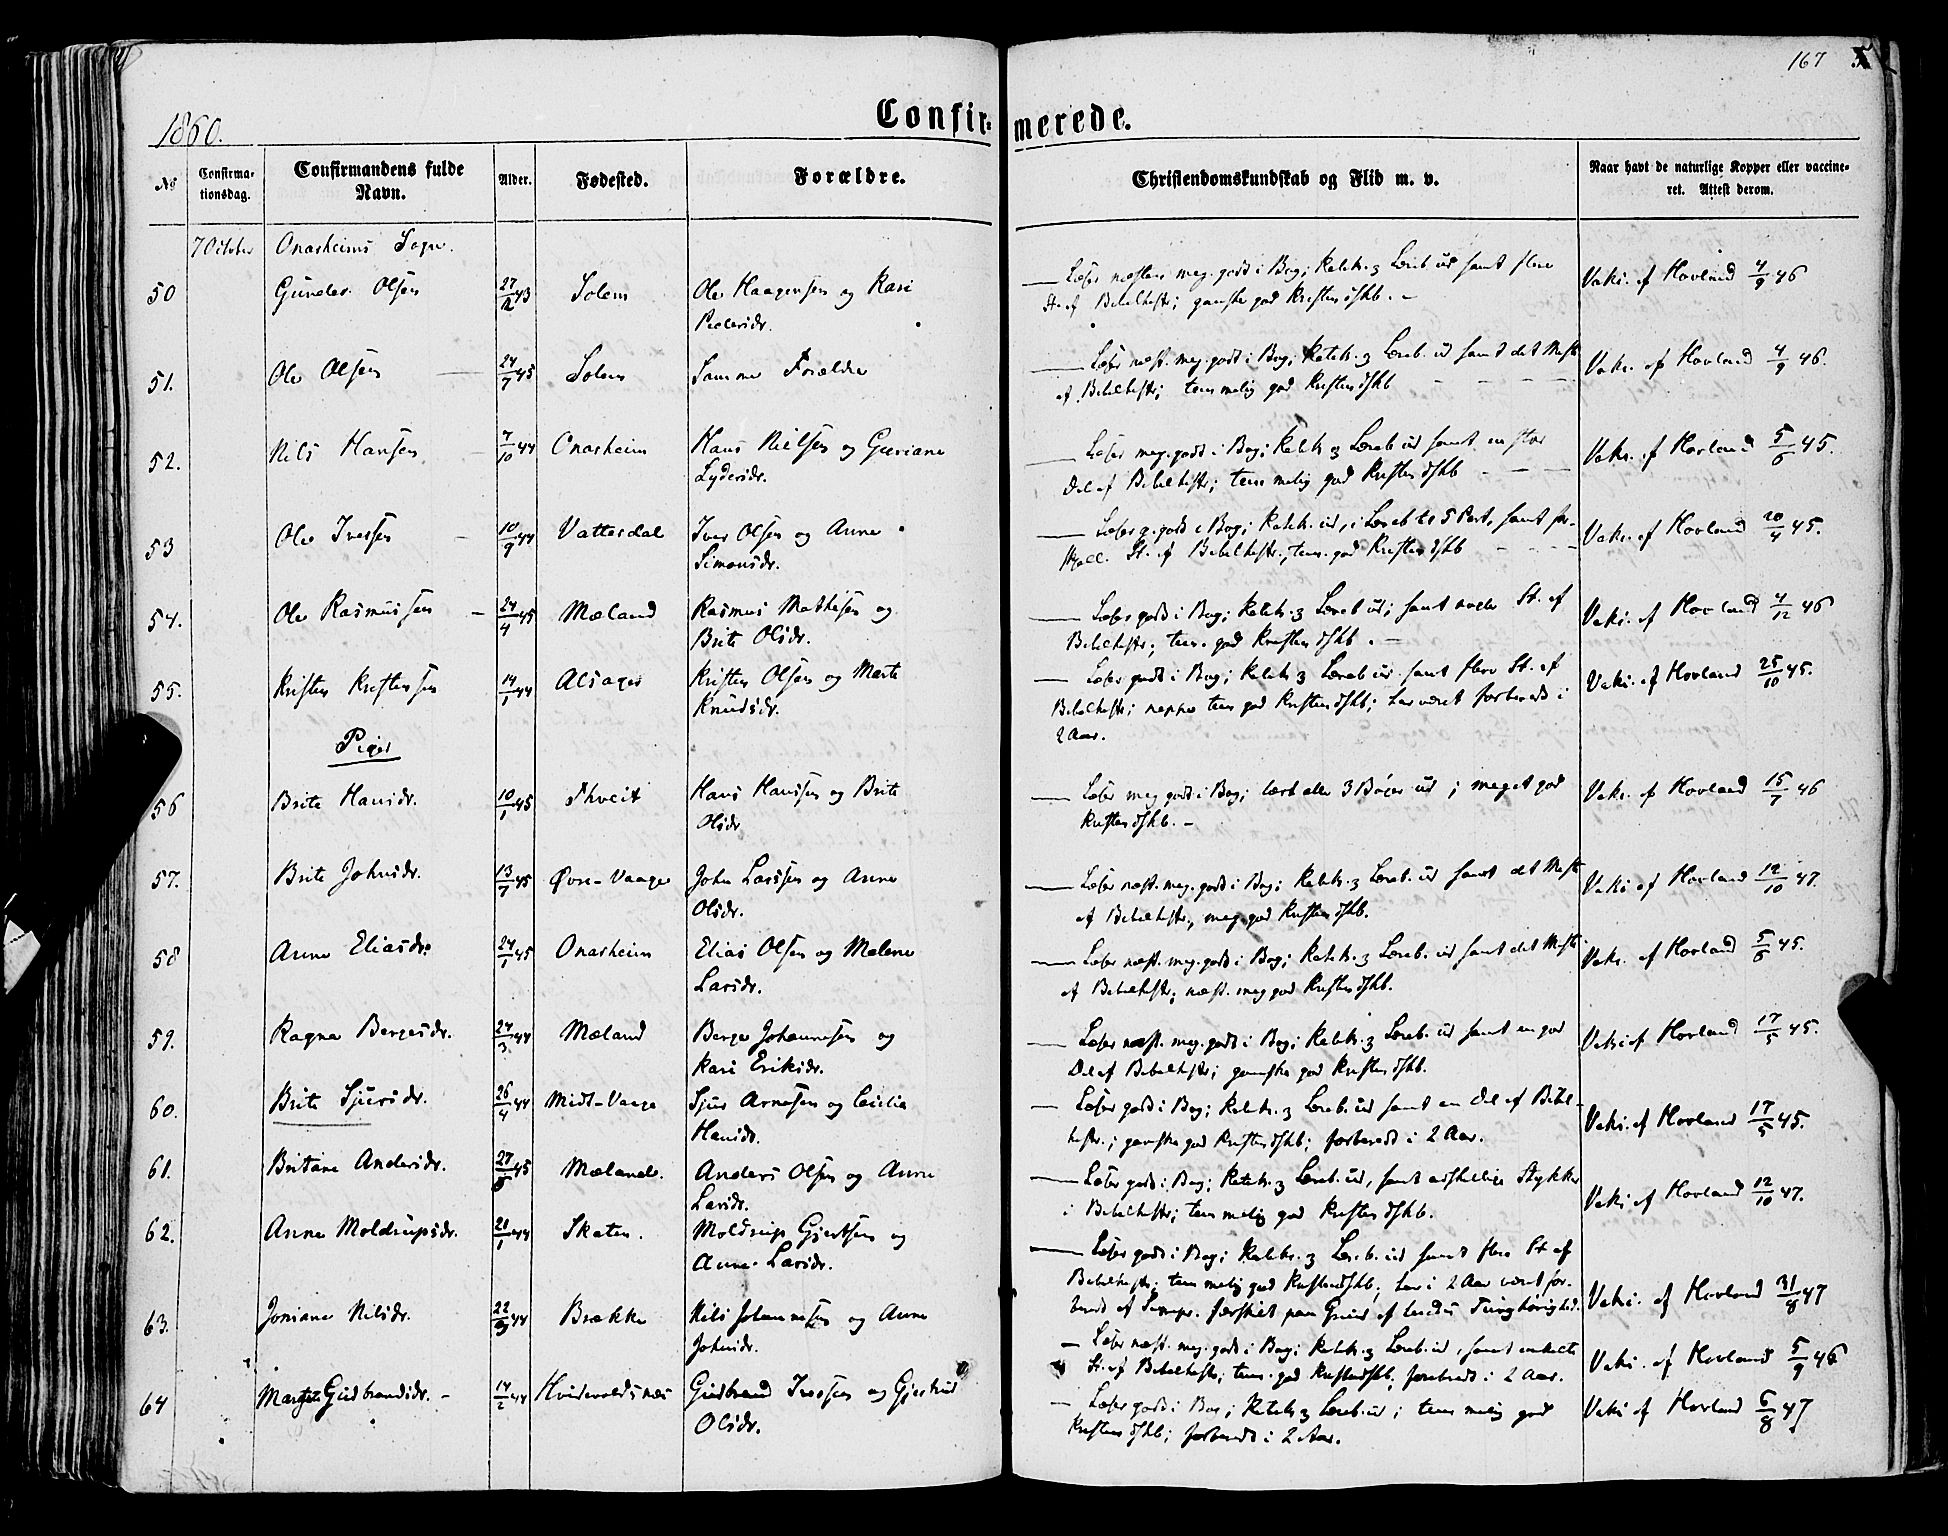 167
1860.
Confir-merede.
No
Confirma-
tionsdag.
Confirmandens fulde
Navn.
Alder.
Fødested.
Forældre.
Christendomskundskab og Flid m. v.
Naar havt de naturlige Kopper eller vaccine-
ret. Attest derom.
7 October Onarheims Sogn.
50 Gunder Olsen 27/12 43 Solem Ole Haagensen og Kari
Pedersdr.
Læser næsten meg. godt i Bog; Katek. & Læreb. ud samt flere
St. af Bibelhistr; ganske god Kristendskb. -
Vaks. af Hovland 4/9 46
51. Ole Olsen 24/7 45 Solem Samme Forældre
Læser næst. meg. godt i Bog; Katek. & Læreb. ud samt det Meste
af Bibelhistr; temmelig god Kristendskb
Vaks. af Hovland 4/9 46.
52. Nils Hansen 7/10 44 Onarheim Hans Nielsen og Guriane
Lydersdr.
Læser meg. godt i Bog; Katek & Læreb ud samt en stor
Del af Bibelhistr; temmelig god Kristendskb
Vaks. af Hovland 5/6 45.
53 Ole Iversen 10/9 44 Vattesdal Iver Olsen og Anne
Simonsdr.
Læser g. godt i Bog; Katek. ud, i Læreb til 5 Part, samt for-
skjell. St. af Bibelhistr., tem. god Kristendskb
Vaks. af Hovland 20/4 45.
54. Ole Rasmussen 24/4 45 Mæland Rasmus Mathisen og
Brite Olsdr.
Læser godt i Bog; Katek. & Læreb ud; samt nogle St. af
Bibelhistr; tem. god Kristendskb. -
Vaks. af Hovland 4/12 46
55. Kristen Kristensen 14/1 44 Alsager Kristen Olsen og Marte
Knudsdr.
Læser godt i Bog; Katek & Læreb ud. samt flere St. af
Bibelhistr; neppe tem god Kristendskb; har været forberedt i
2 Aar.
Vaks. af Hovland 25/10 45.
Piger
56 Brite Hansdr. 10/1 45 Thveit Hans Hanssen og Brite
Olsdr
Læser meg godt i Bog; lært alle 3 Bøger ud; meget god
Kristendskb. -
Vaks. af Hovland 15/7 46
57. Brite Johnsdr. 13/7 45 Øvre-Vaage John Larssen og Anne
Olsdr.
Læser næst. meg. godt i Bog; Katek. & Læreb. ud samt det Meste
af Bibelhistr, meg god Kristendskb.
Vaks af Hovland 12/10 47.
58 Anne Eliasdr. 24/1 45 Onarheim Elias Olsen og Malene
Larsdr.
Læser næst. meg. godt i Bog; Katek. & Læreb. ud samt det Meste
af Bibelhistr; næst. meg god Kristendskb.
Vaks. af Hovland 5/6 45.
59. Ragna Bergesdr. 24/3 44 Mæland Berge Johannesen og
Kari Eriksdr.
Læser næst. meg. godt i Bog; Katek. & Læreb. ud samt en god
Del af Bibelhistr; ganske god Kristendskb.
Vaks af Hovland 17/5 45.
60. Brite Sjursdr. 26/4 44 Midt-Vaage Sjur Arnesen og Cecilia
Hansdr.
Læser godt i Bog; Katek. & Læreb. ud samt en Del af Bibel-
histr.; ganske god Kristendskb; forberedt i 2 Aar.
Vaks. af Hovland 17/5 45.
61. Britane Andersdr. 27/5 45 Mælande. Anders Olsen og Anne
Larsdr.
Læser godt i Bog; Katek. & Læreb. ud, samt adskillige Stykker
i Bibelhistr; temmelig god Kristendskb.
Vaks af Hovland 12/10 47.
62. Anne Moldrupsdr. 21/1 44 Skaten. Moldrup Gjertsen og
Anne Larsdr.
Læser godt i Bog; Katek. & Læreb. ud samt flere St. af
Bibelhistr; temmelig god Kristendskb; har i 2 Aar været for-
beredt af Sempr. særskilt paa Grund af hendes Tunghørighed.
Vaks. af Hovland 31/8 47
63. Joniane Nilsdr. 22/9 44 Brække Nils Johannesen og Anne
Johnsdr.
Læser næst. meg. godt i Bog; Katek. & Læreb. ud, samt enkelte
St. af Bibelhistr; tem. god Kristendskb; forberedt i 2 Aar.
Vaks. af Hovland 5/9 46
64 Margrete Gudbrandsdr. - 14/2 44 Hvidevoldsnes Gudbrand Iversen og Gjertrud
Olsdr.
Læser godt i Bog; Katek & Læreb. ud; temmelig god
Kristendskb; forberedt i 2 Aar.
Vaks af Hovland 6/8 47